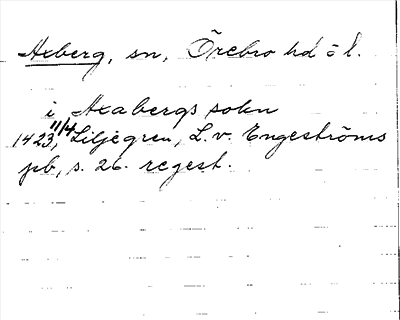 Axberg, sn, Örebro hd ö l.
i Axabergs sokn
1423, 11/4, Liljegren, L. v. Engeströms
pb, s. 26. regest.